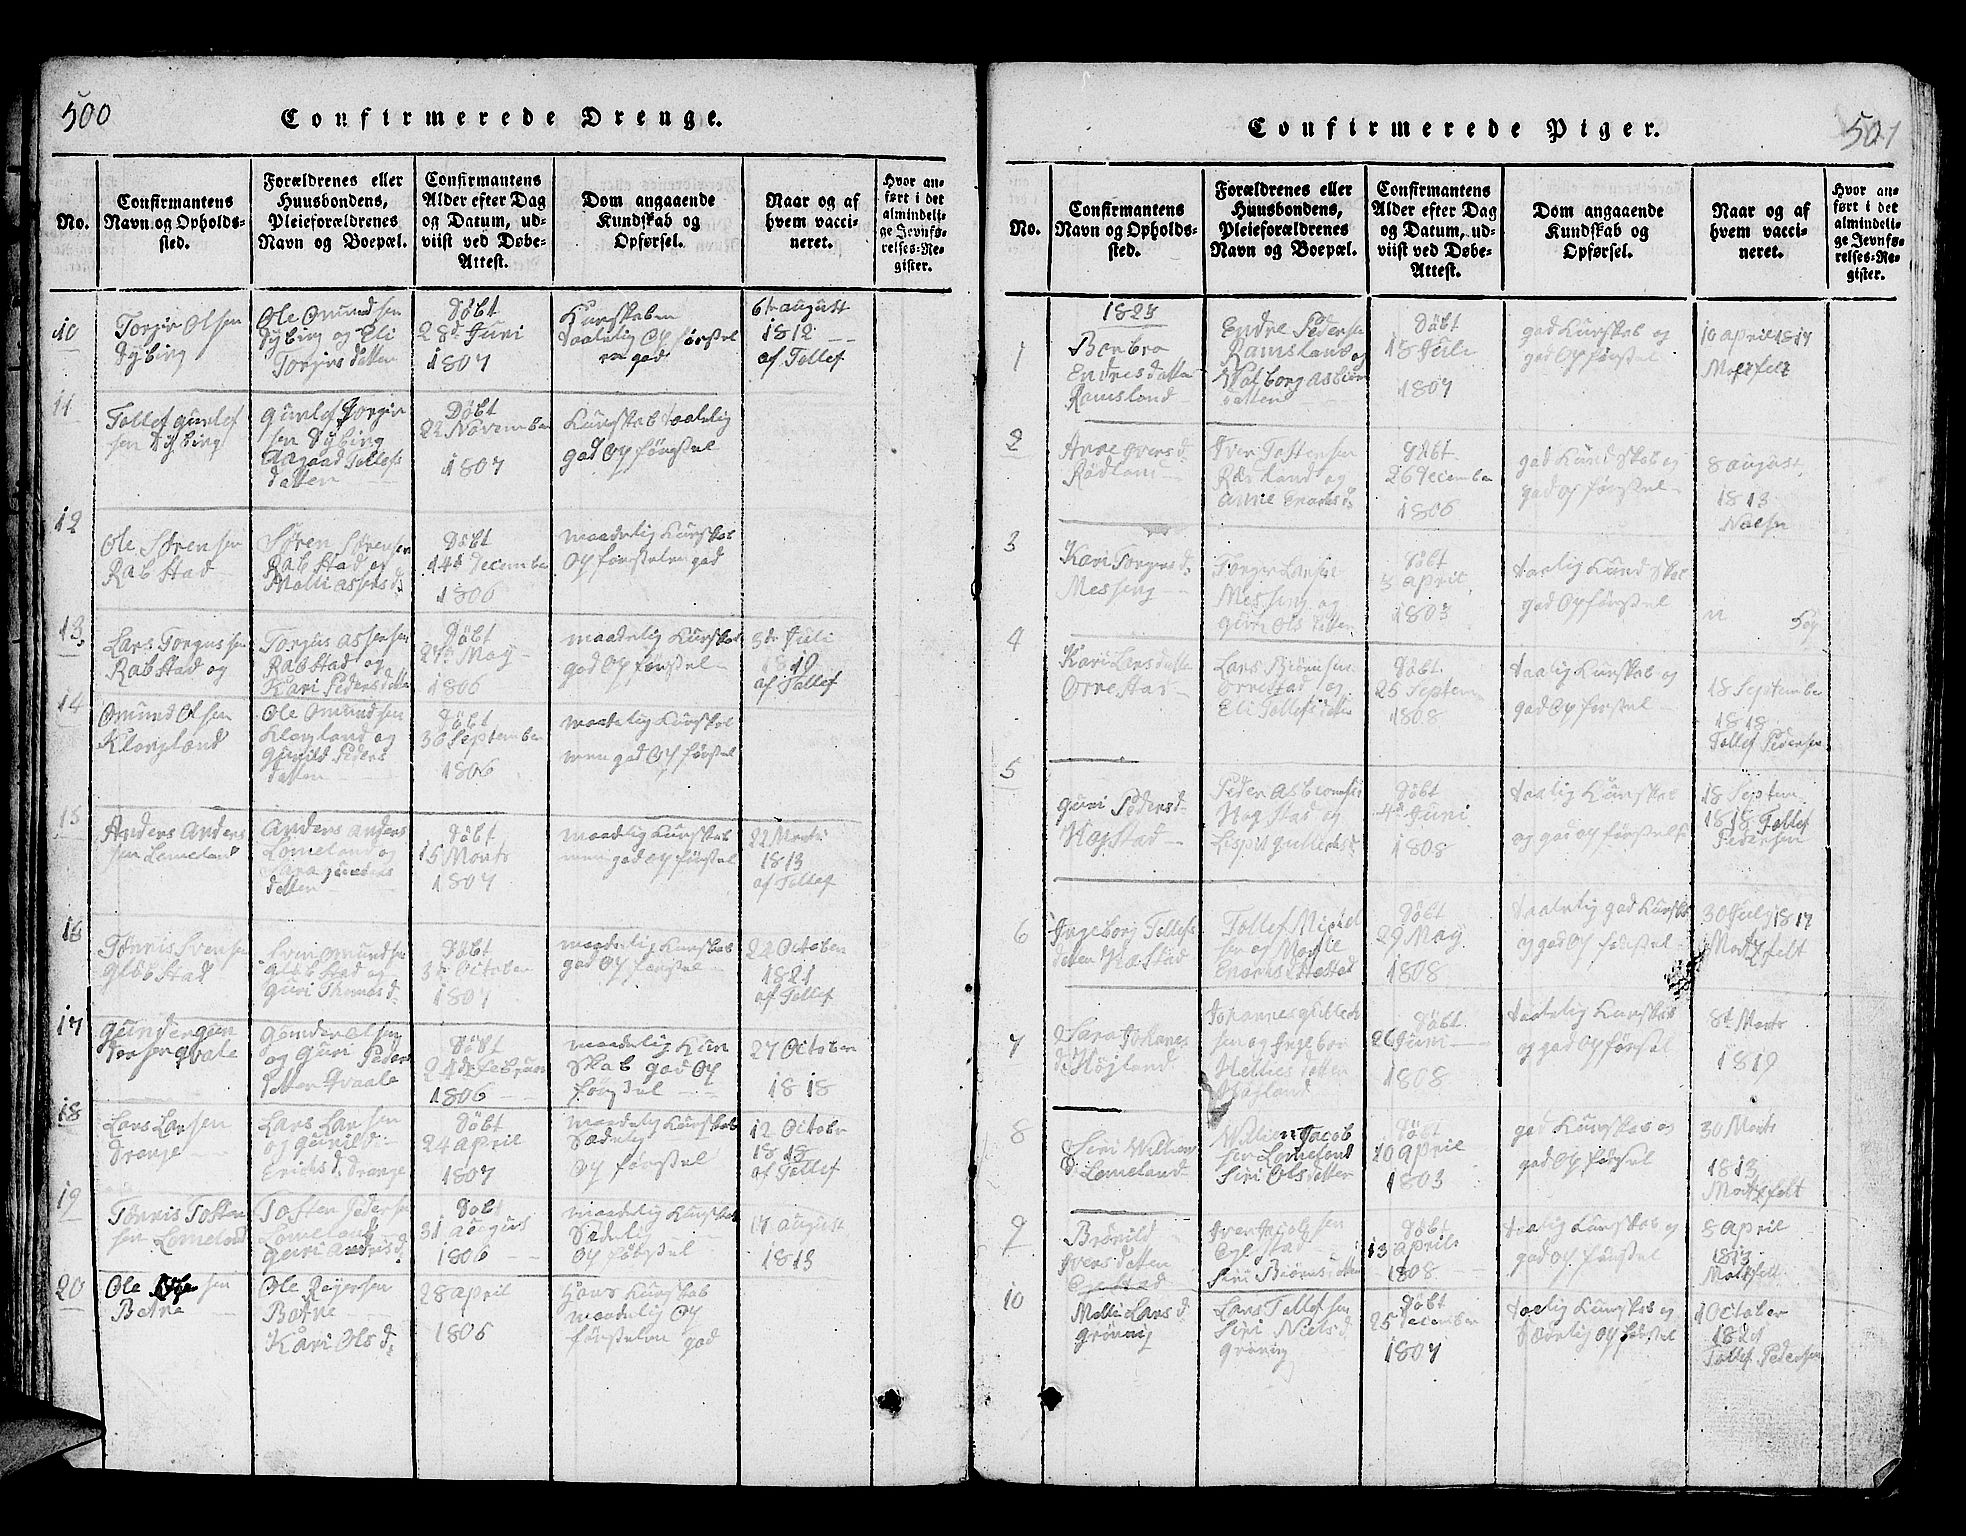 500
Confirmerede Drenge.
No.
Confirmantens
Navn og Opholds-
sted.
Forældrenes eller
Huusbondens,
Pleieforældrenes
Navn og Boepæl.
Confirmantens
Alder efter Dag
og Datum, ud-
viist ved Døbe-
Attest.
Dom angaaende
Kundskab og
Opførsel.
Naar og af
hvem vacci-
neret.
Hvor an-
ført i det
almindeli-
ge Jevnfø-
relses-Re-
gister.
10
Torgir Olsen
Dybing
Ole Omundsen
Dybing og Eli
Torgirs datter
Døbt
28d Juni
1807
Kunskaben
taalelig Opførsel
en god
6te august
1812
af Tollef
11
Tollef gunlef
sen Dybing
gunlef Torgir
sen Dybing
Aagaad Tollefs
datter
Døbt
22 November
1807
Kunskab taalelig
god Opførgsel
12
Ole Sørensen
Rabstad
Søren Sørensen
Rabstad og
Malli assers d:
Døbt
14d December
1806
maadelig Kunskab
Opførselen god
13
Lars Torgussen
Rabstad og
Torgus assersen
Rabstad og
Kari Peders datter
Døbt
27de May
1806
maadelig Kunskab
god Opførsel
3de Juli
1810
af Tollef
14
Omund Olsen
Klongland
Ole Omundsen
Klongland og
gunild Peders
datter
Døbt
30 September
1806
maadelig Kunskab
men god Opførsel
15
Anders Anders
sen Lomeland
Anders anders
Lomeland og
datter
Døbt
15 Morts
1807
maadelig Kunskab
men god Opførsel
22 Morts
1813
af Tollef
16
Tønnis Svensen
gløbstad
Sven Omundsen
gløbstad og
guri Thomas d:
Døbt
3de October
1807
maadelig Kunskab
god Opførsel
22 October
1821
af Tollef
17
gunder gun
dersen qvale
og guri Peder
datter qvaale
Døbt
24de februar
1806
maadelig Kun
skab god Op
førsel
27 October
1818
18
Lars Larsen
Drange
Lars Larsen
og gunild
Erichs d: Drange
Døbt
24 april
1807
maadelig Kunskab
Sædelig
Opførsel
12 October
1813
af Tollef
19
Tønnis Tosten
sen Lomeland
Tosten Pedersen
Lomeland
guri anders d:
Døbt
31 august
1806
maadelig Kunskab
Sædelig
Opførsel
17 august
1813
20
Ole
sen
Botne
Ole Reiersen
Botne
Kari Ols d:
28 april
1806
Hans Kunskab
maadelig Op
førselen god
501
Confirmerede Piger.
No.
Confirmantens
Navn og Opholds-
sted.
Forældrenes eller
Huusbondens,
Pleieforældrenes
Navn og Boepæl.
Confirmantens
Alder efter Dag
og Datum, ud-
viist ved Døbe-
Attest.
Dom angaaende
Kundskab og
Opførsel.
Naar og af
hvem vacci-
neret.
Hvor an-
ført i det
almindeli-
ge Jevnfø-
relses-Re-
gister.
1
Barbro
Endres datter
Ramsland
Endre Pedersen
Ramsland og
Valborg
datter
Døbt
18 Juli
1807
god Kunskab og
god Opførsel
10 april 1817
2
Anne Ivers d
Rødland
Iver Tostensen
Døbt
26 December
1806
god Kundskab og
god opførsel
8 august
1813
3
Kari Torgers d:
Messing
Messing og
guri Ols datter
Døbt
3 april
1803
taalig Kundskab
god Opførsel
4
Kari Lars datter
Ørnestad
Ørnestad og
Eli Tollefs datter
Døbt
25 September
1808
taalig Kunskab og
god Opførsel
18 September
1818
Tollef Pedersen
5
guri Peders d
Hogstad
Hogstad og
Døbt
4de Juni
1808
taalig Kunskab
og god opførsel
18 Septem
1818 Tollef
Pedersen
6
Ingeborg Tollefs
datter Hæstad
Tollef
sen og
Døbt
29 May
1808
taalelig god Kunskab
og god Opførsel
30 July 1817
Mortzfelt
7
Sara Johanes
d: Højland
Johannes
sen og Ingebor
datter
Døbt
26 Juni
1808
taalelig Kunskab
og god Opførsel
8de Morts
1819
8
Siri Willums
d: Lomeland
Jacob
sen Lomeland
Siri Ols datter
Døbt
10 april
1803
god Kunskab og
god Opførsel
30 Morts
1813
Mortzfelt
9
Brønild
Ivers datter
Egestad
Iver Jacobsen
Døbt
13 april
1808
taalig Kunskab og
god Opførsel
8 april
1813
10
Malli Lars d
grøning
Lars Tollefsen
Siri Niels d
grøning
Døbt
25 December
1807
taalig Kunskab og
Sædelig Opførsel
October
Tollef Pedersen